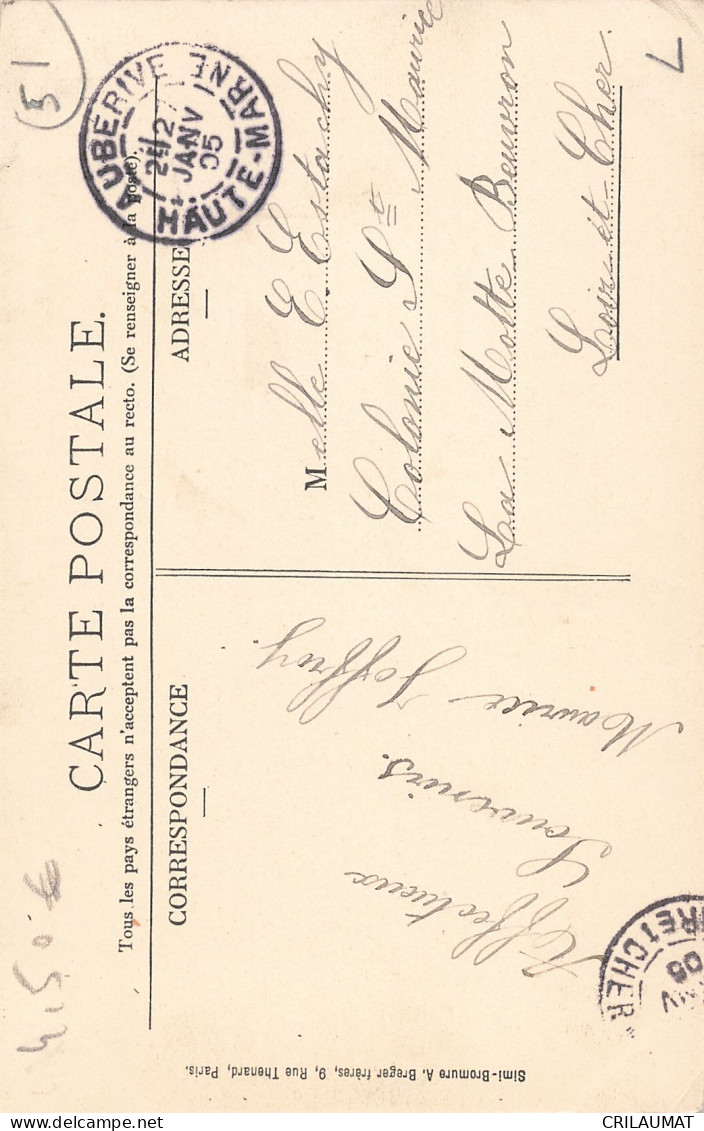 CARTE POSTALE.
Tous les pays étrangers n'acceptent pas la correspondance au recto. (Se renseigner à la poste).
CORRESPONDANCE
ADRESSE
Affectueux
Souvenirs.
Maurice Joffroy.
Melle E Estachy
Colonie Ste Maurice
La Motte Beuvron
Loir et Cher.
AUBERIVE
JANV
05
HAUTE-MARNE
ET CHER
05
Simi-Bromure A. Breger frères, 9, Rue Thenard, Paris.
51
4,50 €
L
CRILAUMAT